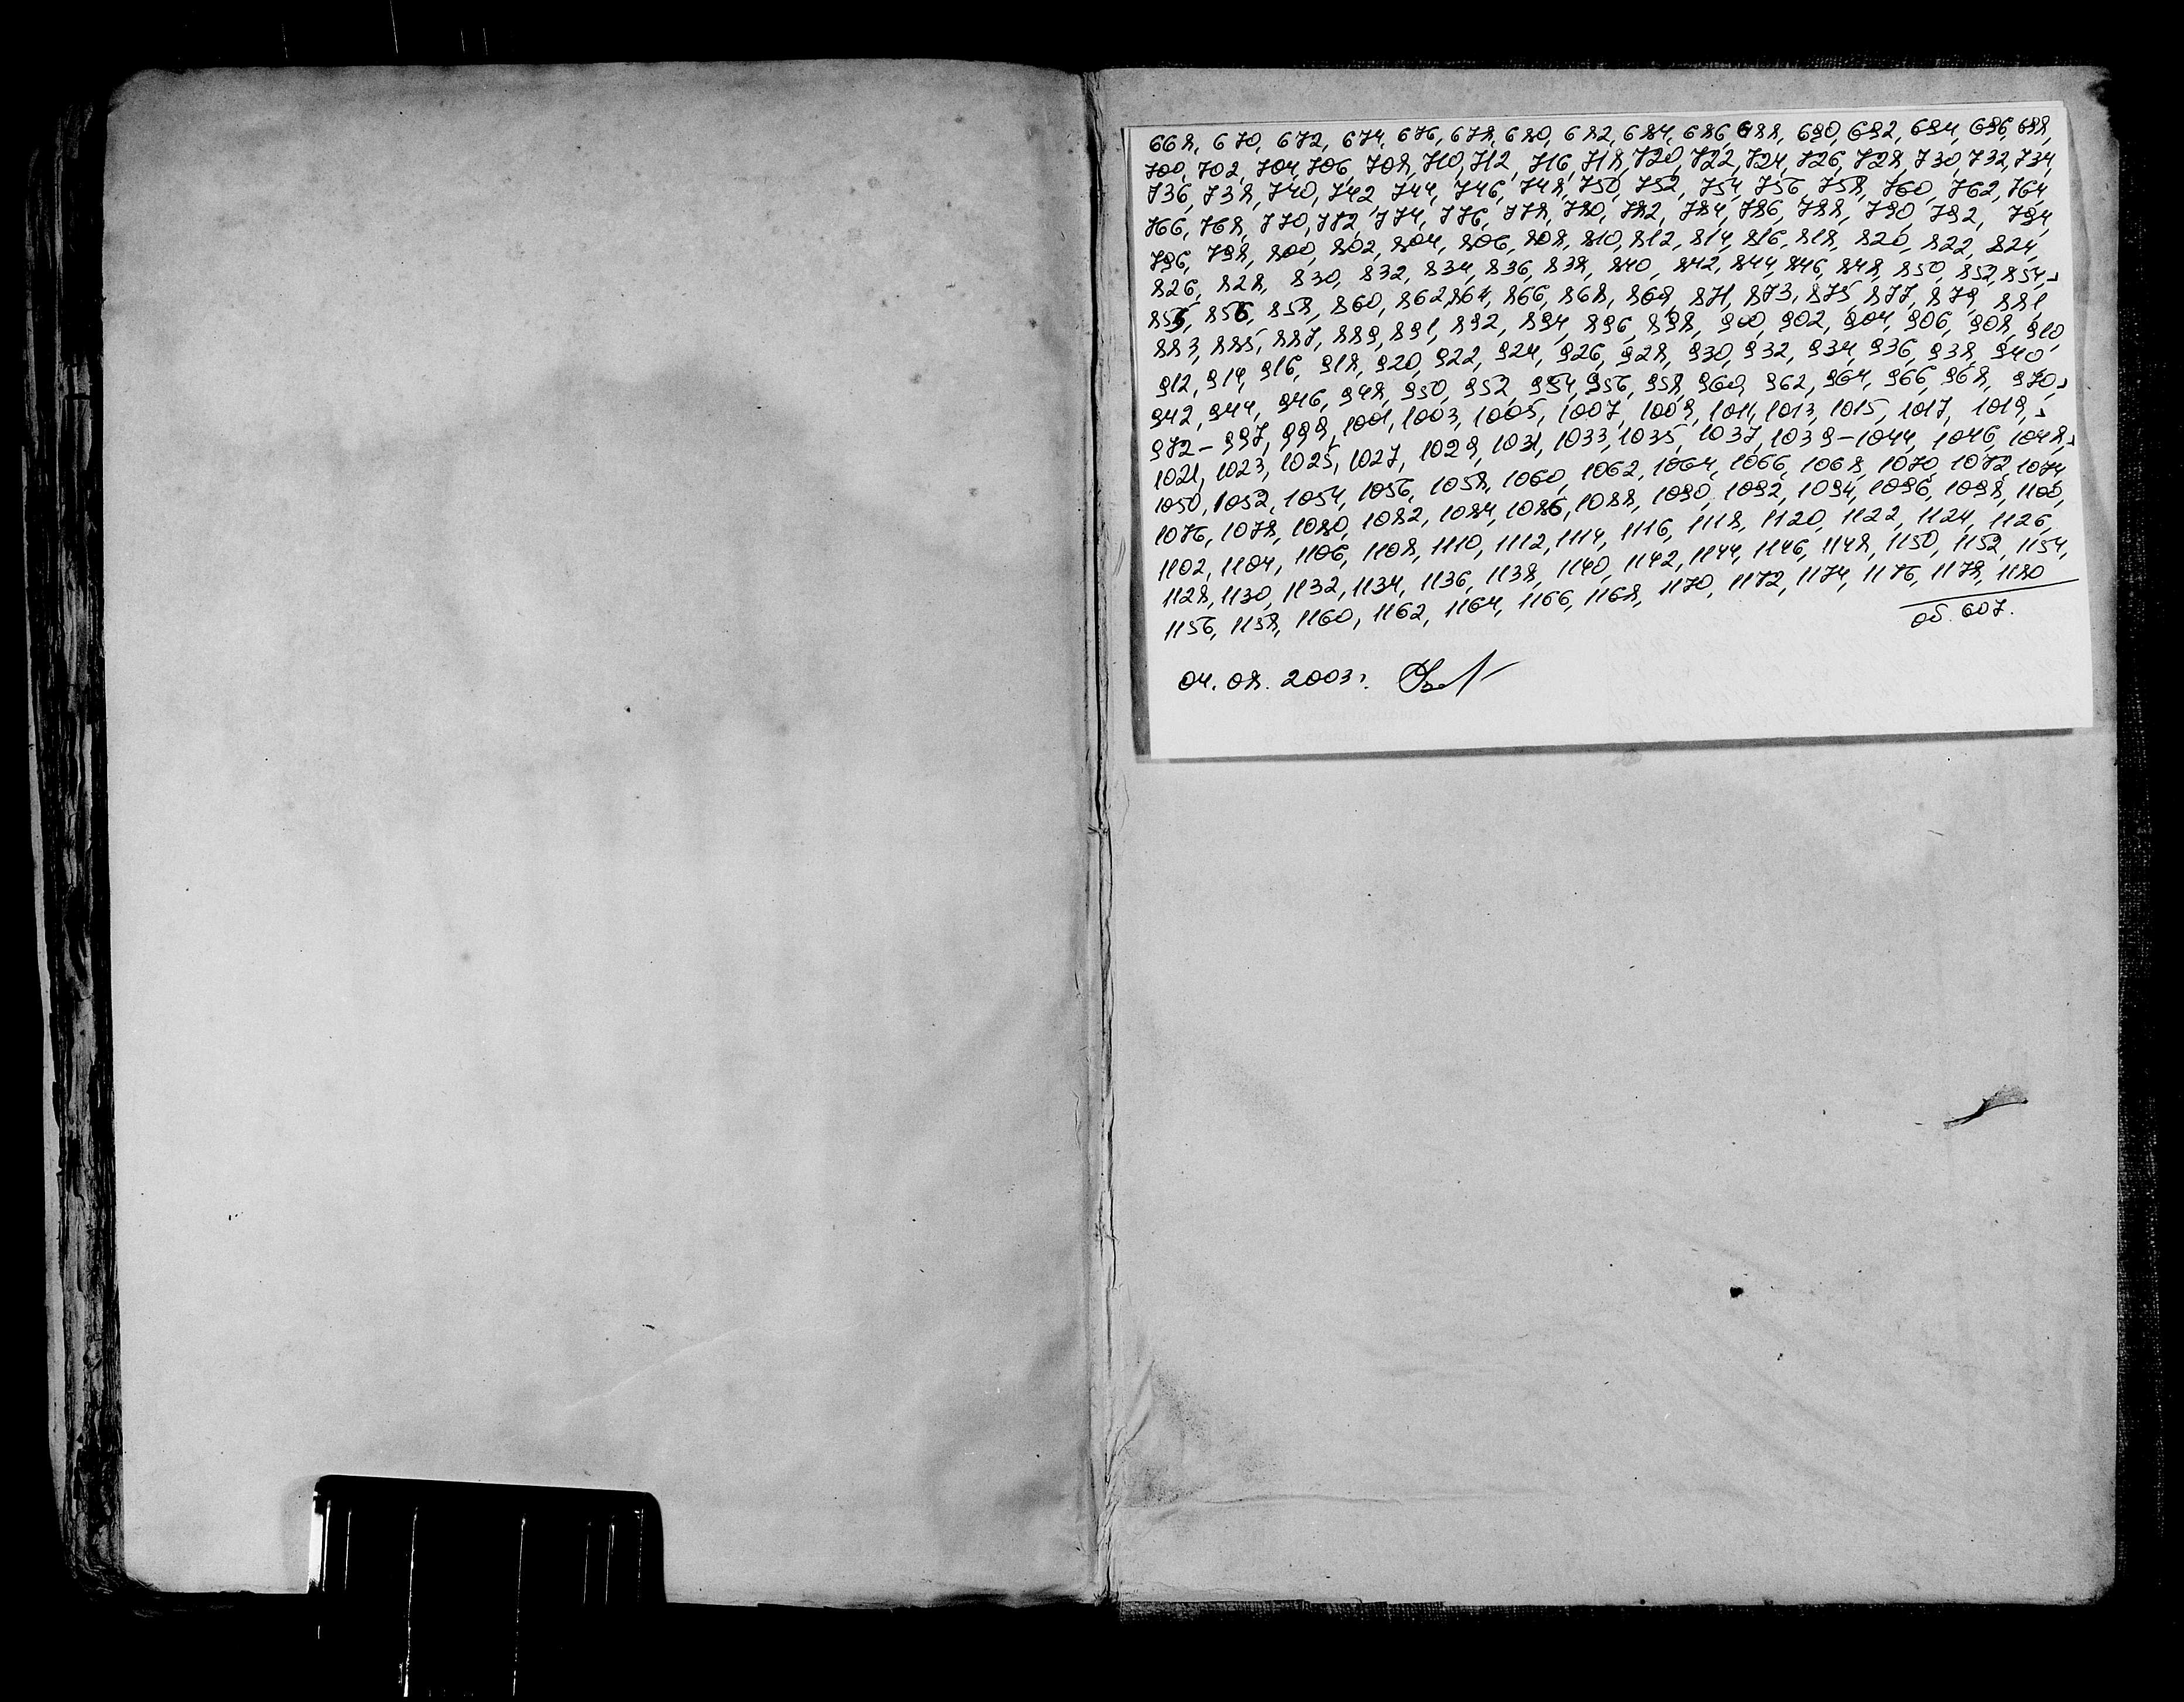 668, 670, 672, 674, 676, 678, 680, 682, 684, 686, 688, 690, 692, 694, 696, 698,
700, 702, 704, 706, 708, 710, 712, 716, 718, 720, 722, 724, 726, 728, 730, 732, 734,
736, 738, 740, 742, 744, 746, 748, 750, 752, 754, 756, 758, 760, 762, 764,
766, 768, 770, 772, 774, 776, 778, 780, 782, 784, 786, 788, 790, 792, 794,
796, 798, 800, 802, 804, 806, 808, 810, 812, 814, 816, 818, 820, 822, 824,
826, 828, 830, 832, 834, 836, 838, 840, 842, 844, 846, 848, 850, 852, 854,
855, 856, 858, 860, 862, 864, 866, 868, 869, 871, 873, 875, 877, 879, 881
883, 885, 887, 889, 891, 892, 894, 896, 898, 900, 902, 904, 906, 908, 910,
912, 914, 916, 918, 920, 922, 924, 926, 928, 930, 932, 934, 936, 938, 940
942, 944, 946, 948, 950, 952, 954, 956, 958, 960, 962, 964, 966, 968, 970,
972-997, 999, 1001, 1003, 1005, 1007, 1009, 1011, 1013, 1015, 1017, 1019,
1021, 1023, 1025, 1027, 1029, 1031, 1033, 1035, 1037, 1039-1044, 1046, 1048,
1050, 1052, 1054, 1056, 1058, 1060, 1062, 1064, 1066, 1068, 1070, 1072, 1074,
1076, 1078, 1080, 1082, 1084, 1086, 1088, 1090, 1092, 1094, 1096, 1098, 1100,
1102, 1104, 1106, 1108, 1110, 1112, 1114, 1116, 1118, 1120, 1122, 1124, 1126,
1128, 1130, 1132, 1134, 1136, 1138, 1140, 1142, 1144, 1146, 1148, 1150, 1152, 1154,
1156, 1158, 1160, 1162, 1164, 1166, 1168, 1170, 1172, 1174, 1176, 1178, 1180
об. 607.
04. 08. 2003г.